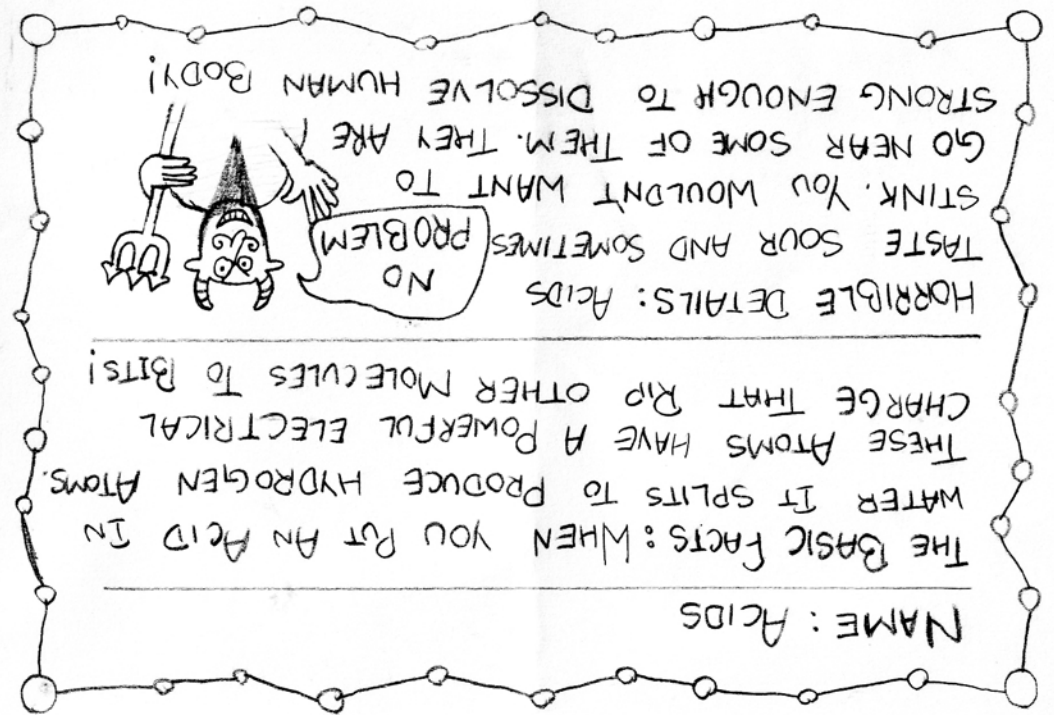 NAME: ACIDS
THE BASIC FACTS: WHEN YOU PUT AN ACID IN
WATER IT SPLITS TO PRODUCE HYDROGEN ATOMS.
THESE ATOMS HAVE A POWERFUL ELECTRICAL
CHARGE THAT RIP OTHER MOLECULES TO BITS!
HORRIBLE DETAILS: ACIDS
TASTE SOUR AND SOMETIMES
STINK. YOU WOULDN'T WANT TO
GO NEAR SOME OF THEM. THEY ARE
STRONG ENOUGH TO DISSOLVE HUMAN BODY!
NO
PROBLEM